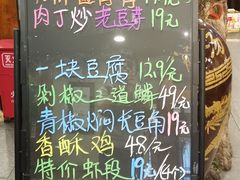 肉丁炒老豆芽19元
一块豆腐12.9/元
剁椒三道鳞49/元
青椒焖长豆角19元
香酥鸡48/元
特价虾段19元/(4个)